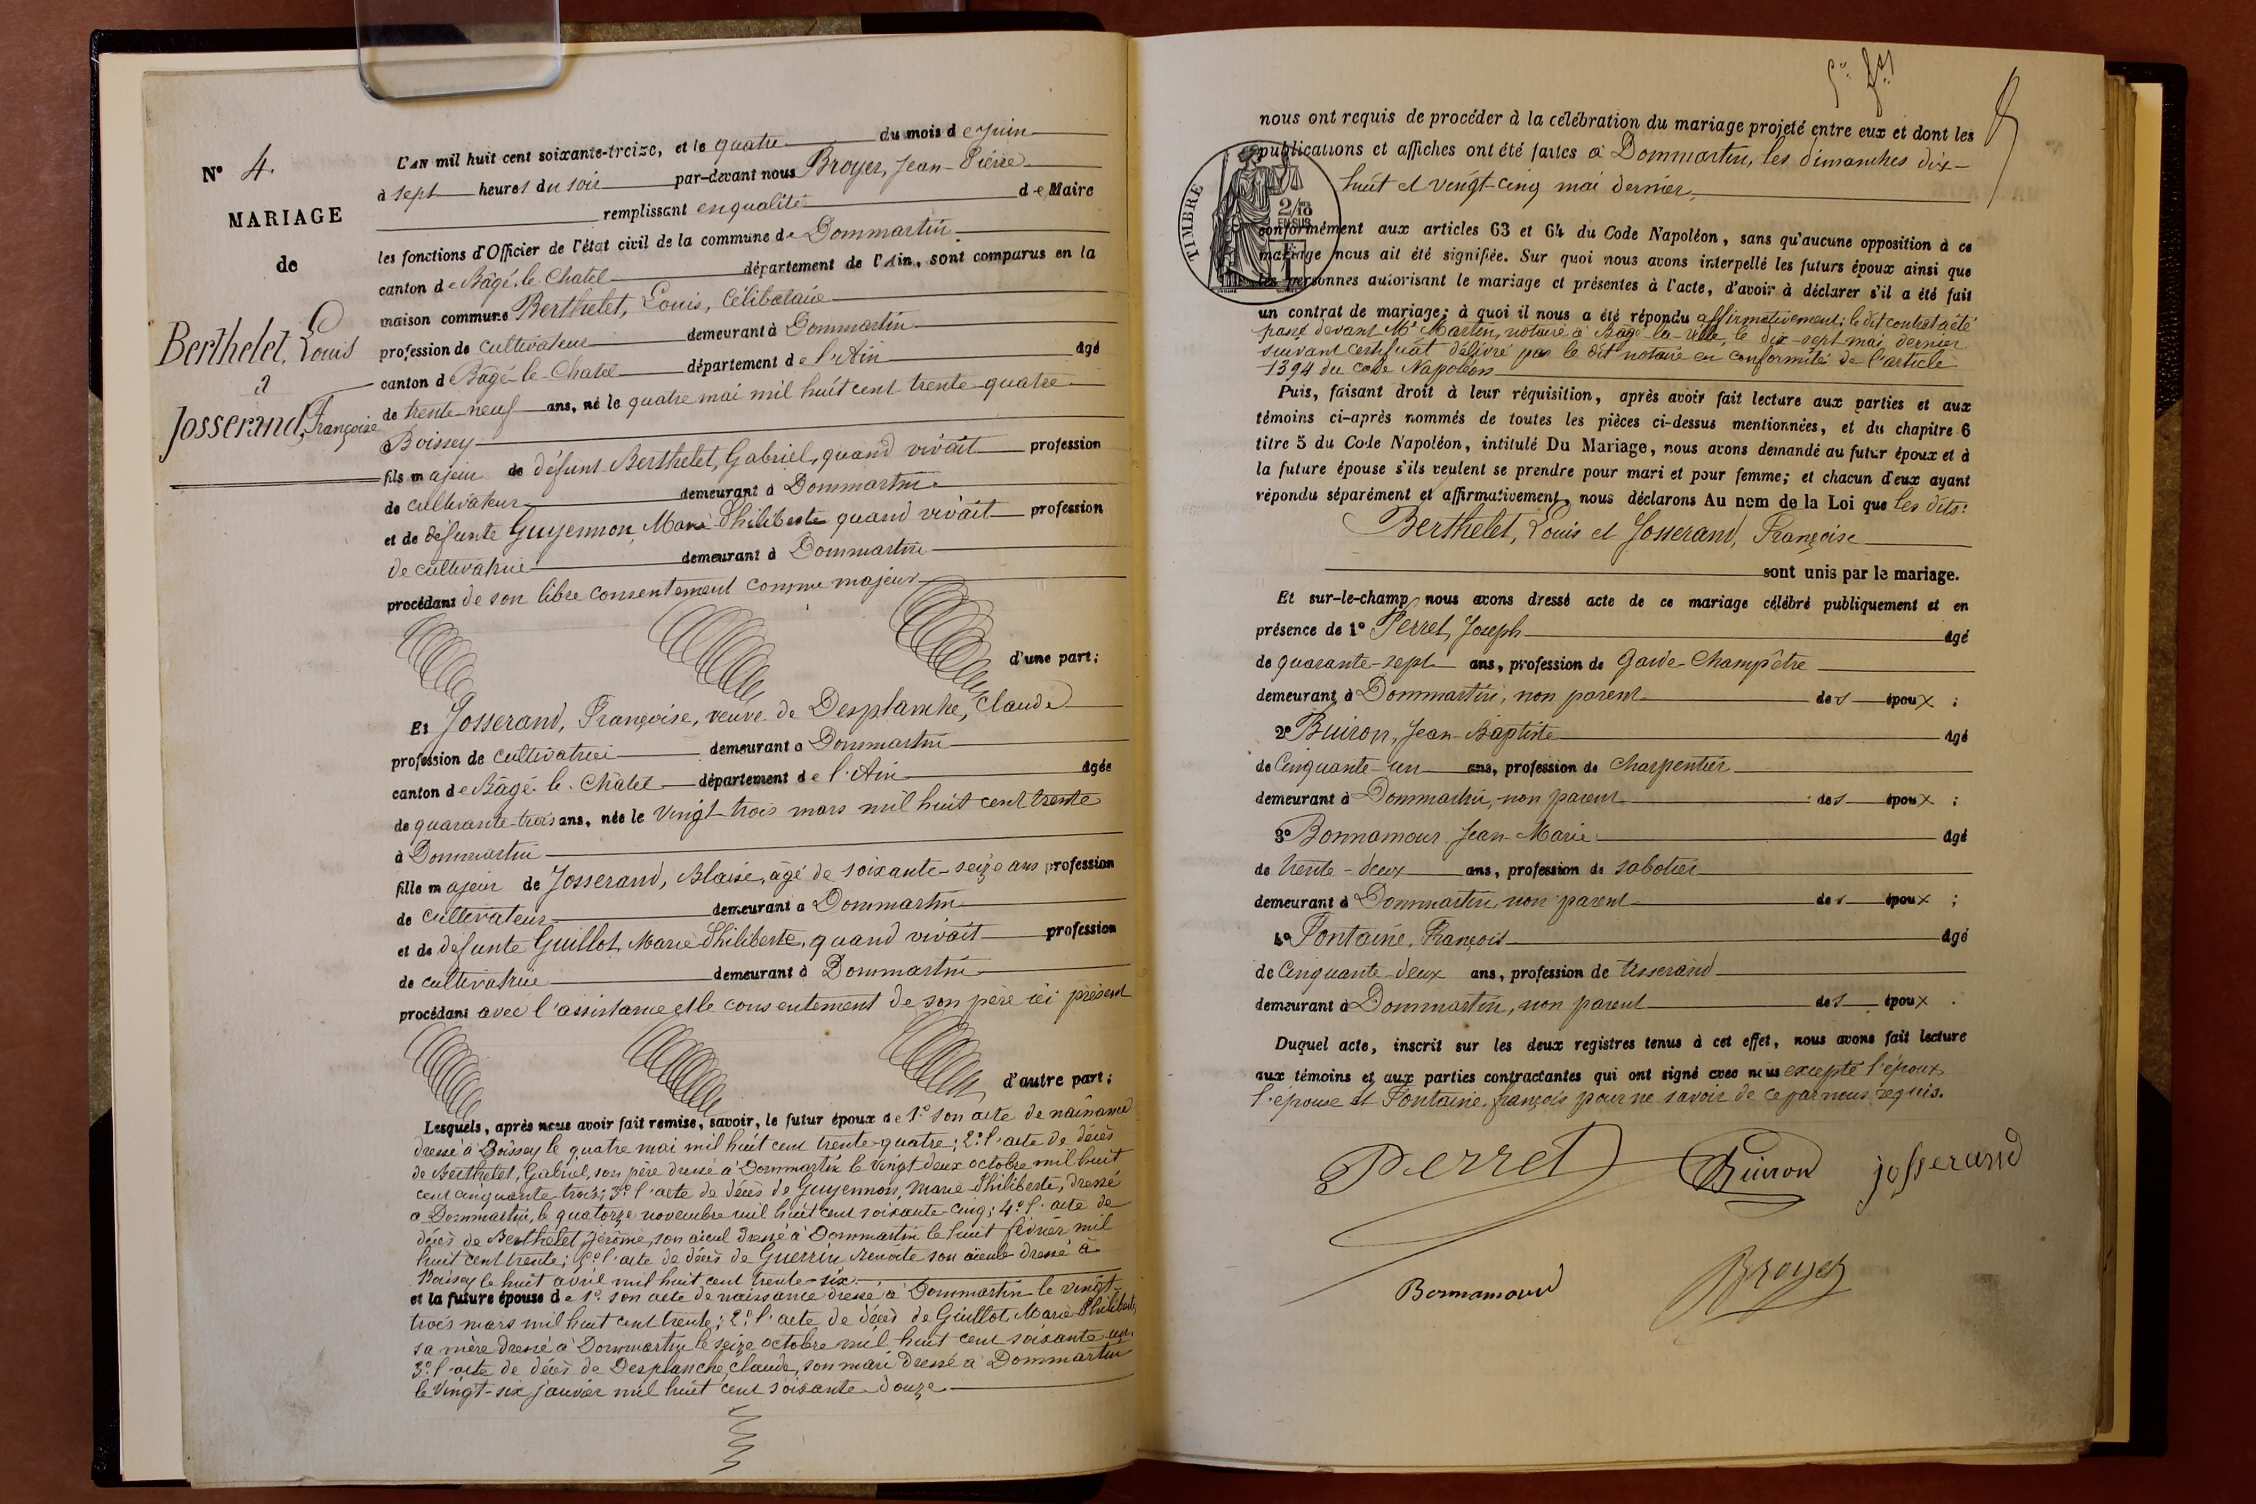 N° 4.
MARIAGE
de
Berthelet, Louis
à
Josserand, Françoise
L'AN mil huit cent soixante-treize, et le quatre du mois de Juin
à sept heures du soir par-devant nous Broyer, Jean-Pierre
remplissant en qualité de Maire
les fonctions d'Officier de l'état civil de la commune de Dommartin
canton de Bâgé-le-Chatel département de l'Ain, sont comparus en la
maison commune Berthelet, Louis, Célibataire
profession de cultivateur demeurant à Dommartin
canton de Bâgé-le-Chatel département de l'Ain âgé
de trente-neuf ans, né le quatre mai mil huit cent trente-quatre
à Boissey
fils majeur de défunt Berthelet, Gabriel, quand vivait profession
de cultivateur demeurant à Dommartin
et de défunte Guyennon, Marie Philiberte quand vivait profession
de cultivatrice demeurant à Dommartin
procédant de son libre consentement comme majeur
d'une part;
Et Josserand, Françoise, veuve de Desplanche, Claude
profession de cultivatrice demeurant à Dommartin
canton de Bâgé-le-Châtel département de l'Ain âgée
de quarante-trois ans, née le vingt-trois mars mil huit cent trente
à Dommartin
fille majeur de Josserand, Blaise, âgé de soixante-seize ans profession
de cultivateur demeurant à Dommartin
et de défunte Guillot, Marie Philiberte, quand vivait profession
de cultivatrice demeurant à Dommartin
procédant avec l'assistance et le consentement de son père ici présent
d'autre part;
Lesquels, après nous avoir fait remise, savoir, le futur époux de 1° son acte de naissance
dressé à Boissey le quatre mai mil huit cent trente-quatre; 2° l'acte de décès
de Berthelet, Gabriel, son père dressé à Dommartin le vingt deux octobre mil huit
cent cinquante trois; 3° l'acte de décès de Guyennon, Marie Philiberte, dressé
à Dommartin, le quatorze novembre mil huit cent soixante-cinq; 4° l'acte de
décès de Berthelet Jérôme, son aïeul dressé à Dommartin le huit février mil
huit cent trente; 5° l'acte de décès de Guerrin Benoite son aïeule dressé à
Boissey le huit avril mil huit cent trente-six
et la future épouse de 1° son acte de naissance dressé à Dommartin le vingt-
trois mars mil huit cent trente; 2° l'acte de décès de Guillot, Marie Philiberte
sa mère dressé à Dommartin le seize octobre mil huit cent soixante un
3° l'acte de décès de Desplanche, Claude, son mari dressé à Dommartin
le vingt-six janvier mil huit cent soixante-douze
nous ont requis de procéder à la célébration du mariage projeté entre eux et dont les
publications et affiches ont été faites à Dommartin, les dimanches dix-
huit et vingt-cinq mai dernier,
TIMBRE
2/10
EN SUS
conformément aux articles 63 et 64 du Code Napoléon, sans qu'aucune opposition à ce
mariage nous ait été signifiée. Sur quoi nous avons interpellé les futurs époux ainsi que
les personnes autorisant le mariage et présentes à l'acte, d'avoir à déclarer s'il a été fait
un contrat de mariage; à quoi il nous a été répondu affirmativement; le dit contrat a été
passé devant Me Martin, notaire à Bâgé-la-Ville, le dix-sept mai dernier
suivant certificat délivré par le dit notaire en conformité de l'article
1394 du code Napoléon
Puis, faisant droit à leur réquisition, après avoir fait lecture aux parties et aux
témoins ci-après nommés de toutes les pièces ci-dessus mentionnées, et du chapitre 6
titre 5 du Code Napoléon, intitulé Du Mariage, nous avons demandé au futur époux et à
la future épouse s'ils veulent se prendre pour mari et pour femme; et chacun d'eux ayant
répondu séparément et affirmativement, nous déclarons Au nom de la Loi que les dits:
Berthelet, Louis et Josserand, Françoise
sont unis par le mariage.
Et sur-le-champ nous avons dressé acte de ce mariage célébré publiquement et en
présence de 1° Perret, Joseph âgé
de quarante-sept ans, profession de Garde-Champêtre
demeurant à Dommartin, non parent des époux ;
2° Buiron, Jean-Baptiste âgé
de Cinquante-un ans, profession de charpentier
demeurant à Dommartin, non parent des époux ;
3° Bonnamour Jean-Marie âgé
de trente-deux ans, profession de sabotier
demeurant à Dommartin, non parent des époux ;
4° Fontaine, François âgé
de Cinquante-deux ans, profession de tisserand
demeurant à Dommartin, non parent des époux .
Duquel acte, inscrit sur les deux registres tenus à cet effet, nous avons fait lecture
aux témoins et aux parties contractantes qui ont signé avec nous excepté l'époux,
l'épouse et Fontaine, françois pour ne savoir de ce par nous requis.
Perret Buiron josserand
Bonnamour Broyer